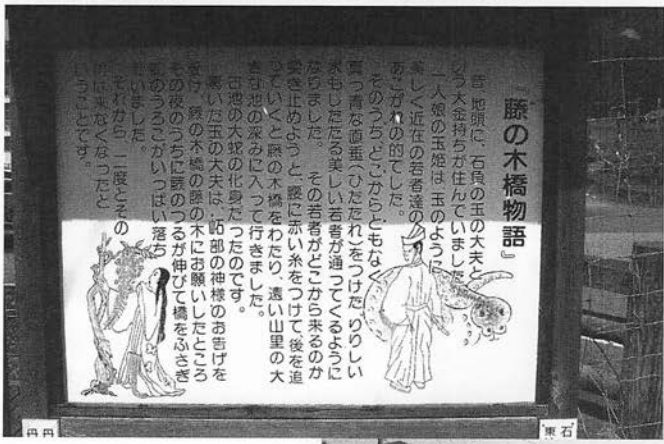 『藤の木橋物語』
昔、地頭に、石角の玉の大夫と
いう大金持ちが住んでいました。
一人娘の玉姫は、玉のように
美しく近在の若者達の
あこがれの的でした。
そのうち、どこからともなく
真っ青な直垂(ひだたれ)をつけた、りりしい
水もしたたる美しい若者が通ってくるように
なりました。 その若者がどこから来るのか
突き止めようと、腰に赤い糸をつけて、後を追
っていくと藤の木橋をわたり、遠い山里の大
きな池の深みに入って行きました。
古池の大蛇の化身だったのです。
驚いた玉の大夫は、部の神様のお告げを
受け、藤の木橋の藤の木にお願いしたところ
その夜のうちに藤のつるが伸びて橋をふさぎ
蛇のうろこがいっぱい落ち
ていました。
それから、二度とその
は来なくなったと
いうことです。
石
東
丹
丹